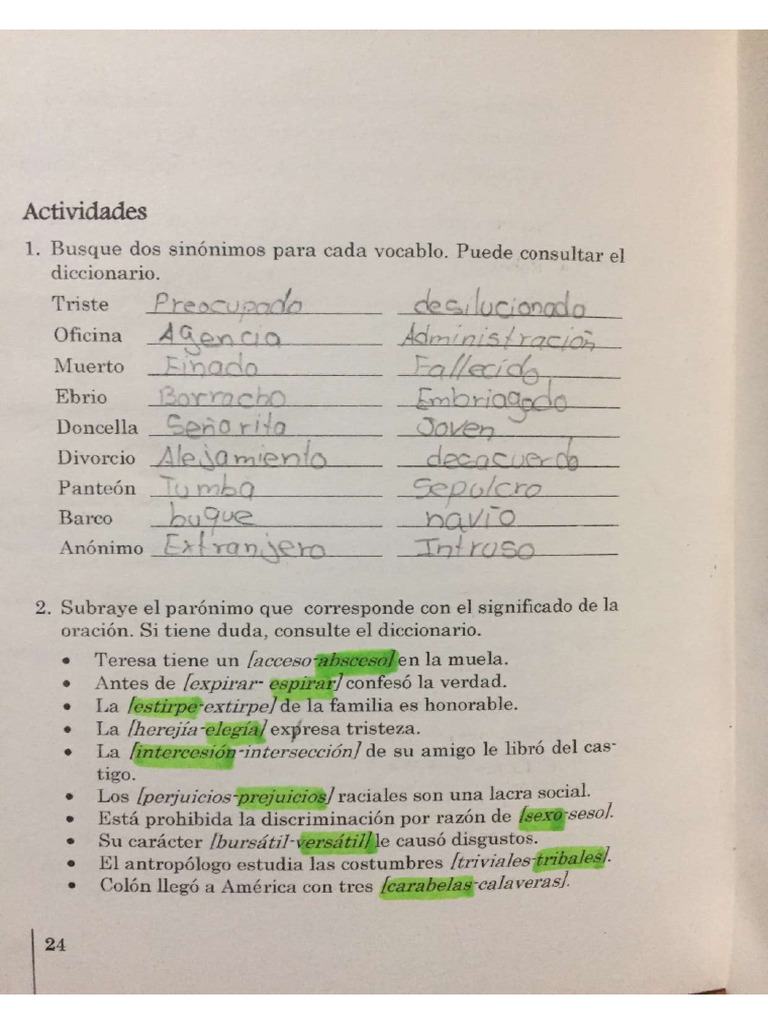 Actividades
1. Busque dos sinónimos para cada vocablo. Puede consultar el
diccionario.
Triste Preocupado desilucionado
Oficina Agencia Administración
Muerto Finado Fallecido
Ebrio Borracho Embriagado
Doncella Señarita Joven
Divorcio Alejamiento decacuerdo
Panteón Tumba Sepulcro
Barco buque navío
Anónimo Extranjero Intruso
2. Subraye el parónimo que corresponde con el significado de la
oración. Si tiene duda, consulte el diccionario.
• Teresa tiene un [acceso-absceso] en la muela.
• Antes de [expirar- espirar] confesó la verdad.
• La [estirpe-extirpe] de la familia es honorable.
• La [herejía-elegía] expresa tristeza.
• La [intercesión-intersección] de su amigo le libró del cas-
tigo.
• Los [perjuicios-prejuicios] raciales son una lacra social.
• Está prohibida la discriminación por razón de [sexo-seso].
• Su carácter [bursátil-versátil] le causó disgustos.
• El antropólogo estudia las costumbres [triviales-tribales].
• Colón llegó a América con tres [carabelas-calaveras].
24